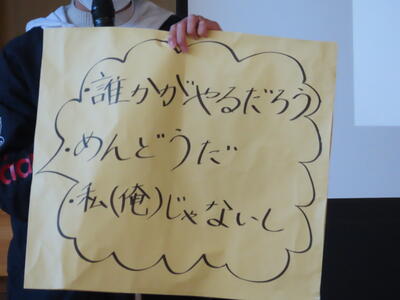 ・誰かがやるだろう
・めんどうだ
・私(俺)じゃないし